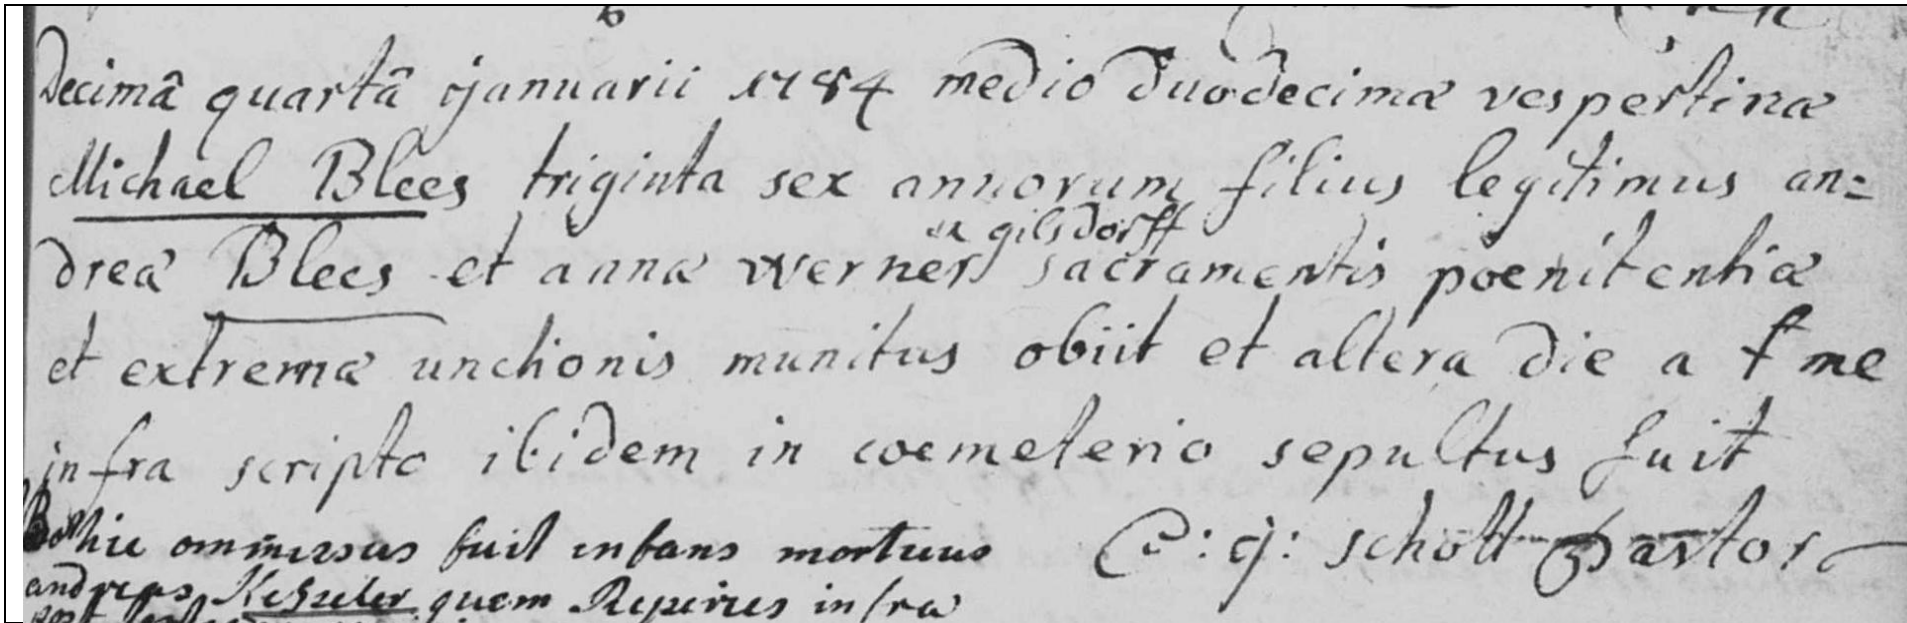 Decimâ quartâ januarii 1784 medio duodecimæ vespertinæ
Michael Blees triginta sex annorum filius legitimus an=
ex gilsdorff
dreæ Blees et annæ werner sacramentis poenitentiæ
et extremæ unctionis munitus obiit et altera die a me
infra scripto ibidem in coemeterio sepultus fuit
hic ommissus fuit infans mortuus
schott Pastor
andreas quem Reperies infra